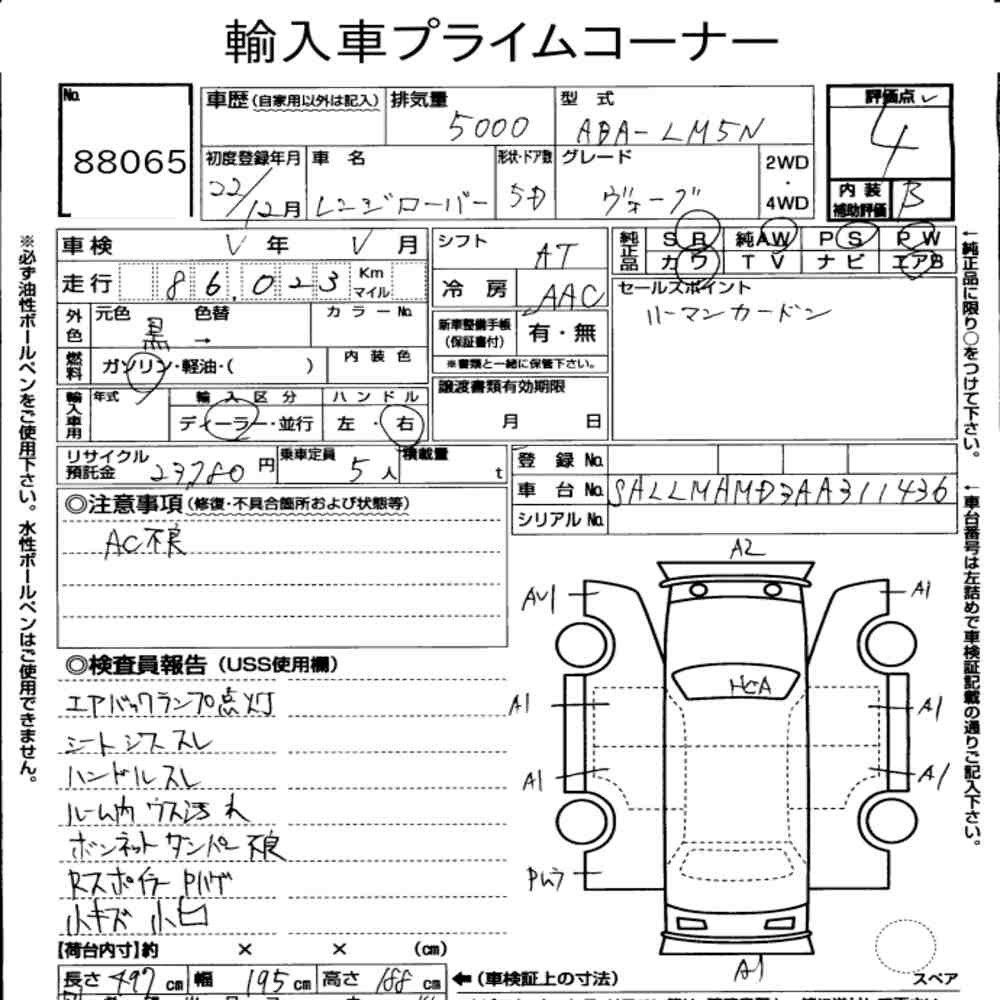 輸入車プライムコーナー
No. 88065
車歴 (自家用以外は記入) 排気量 5000 型式 ABA-LM5N
初度登録年月 22/12月 車名 レンジローバー 形状・ドア数 5D グレード ヴォーグ 2WD・4WD
評価点 4
内装補助評価 B
車検 年 月
走行 86,023 Km マイル
外色 元色 黒 色替 → カラーNo.
燃料 ガソリン・軽油・( ) 内装色
輸入車用 年式 輸入区分 ディーラー・並行 ハンドル 左・右
シフト AT
冷房 AAC
新車整備手帳(保証書付) 有・無
※書類と一緒に保管下さい。
譲渡書類有効期限
月 日
純正品 SR 純AW PS PW
カワ TV ナビ エアB
セールスポイント
ハーマンカードン
リサイクル預託金 23,780円 乗車定員 5人 積載量 t
登録No.
車台No. SALLMAMD3AA311436
シリアルNo.
◎注意事項 (修復・不具合箇所および状態等)
AC不良
◎検査員報告 (USS使用欄)
エアバックランプ点灯
シートシワスレ
ハンドルスレ
ルーム内ウス汚れ
ボンネットダンパー不良
Rスポイラーハゲ
小キズ小凹
【荷台内寸】約 × × (cm)
長さ 497 cm 幅 195 cm 高さ 188 cm ←(車検証上の寸法)
A2
A1
A1
A1
A1
A1
A1
スペア
※必ず油性ボールペンをご使用下さい。水性ボールペンはご使用できません。
←純正品に限り○をつけて下さい。
←車台番号は左詰めで車検証記載の通りご記入下さい。